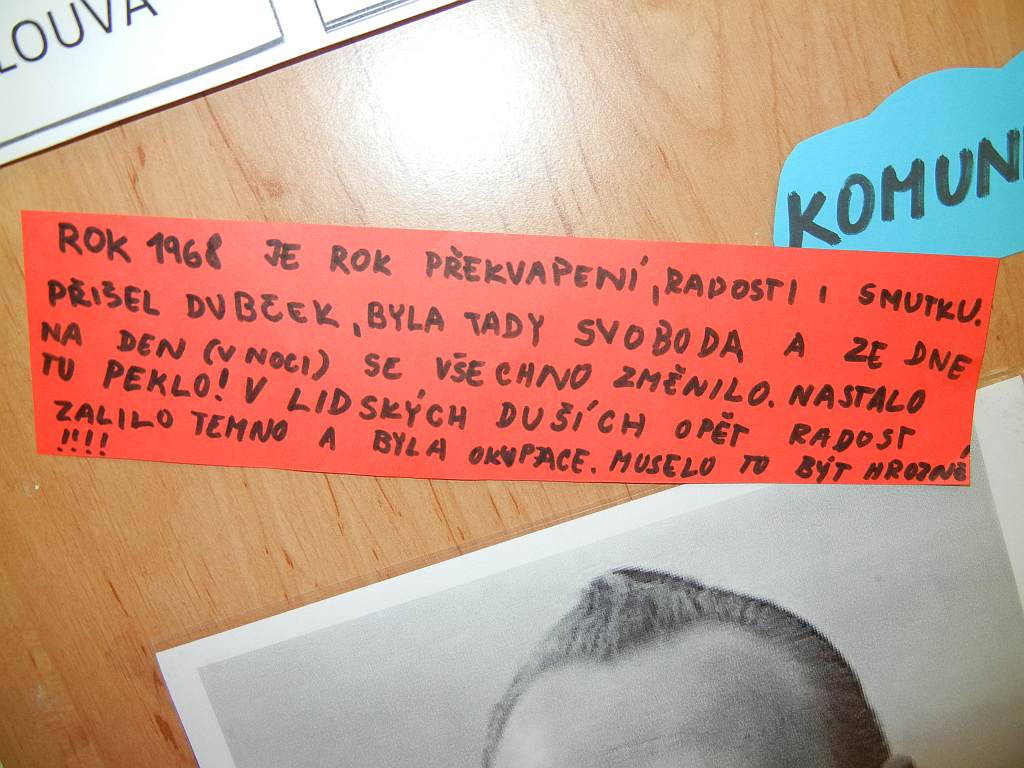 LOUVA
KOMUN
ROK 1968 JE ROK PŘEKVAPENÍ, RADOSTI I SMUTKU.
PŘIŠEL DUBČEK, BYLA TADY SVOBODA A ZE DNE
NA DEN (V NOCI) SE VŠECHNO ZMĚNILO. NASTALO
TU PEKLO! V LIDSKÝCH DUŠÍCH OPĚT RADOST
ZALILO TEMNO A BYLA OKUPACE. MUSELO TO BÝT HROZNÉ
!!!!